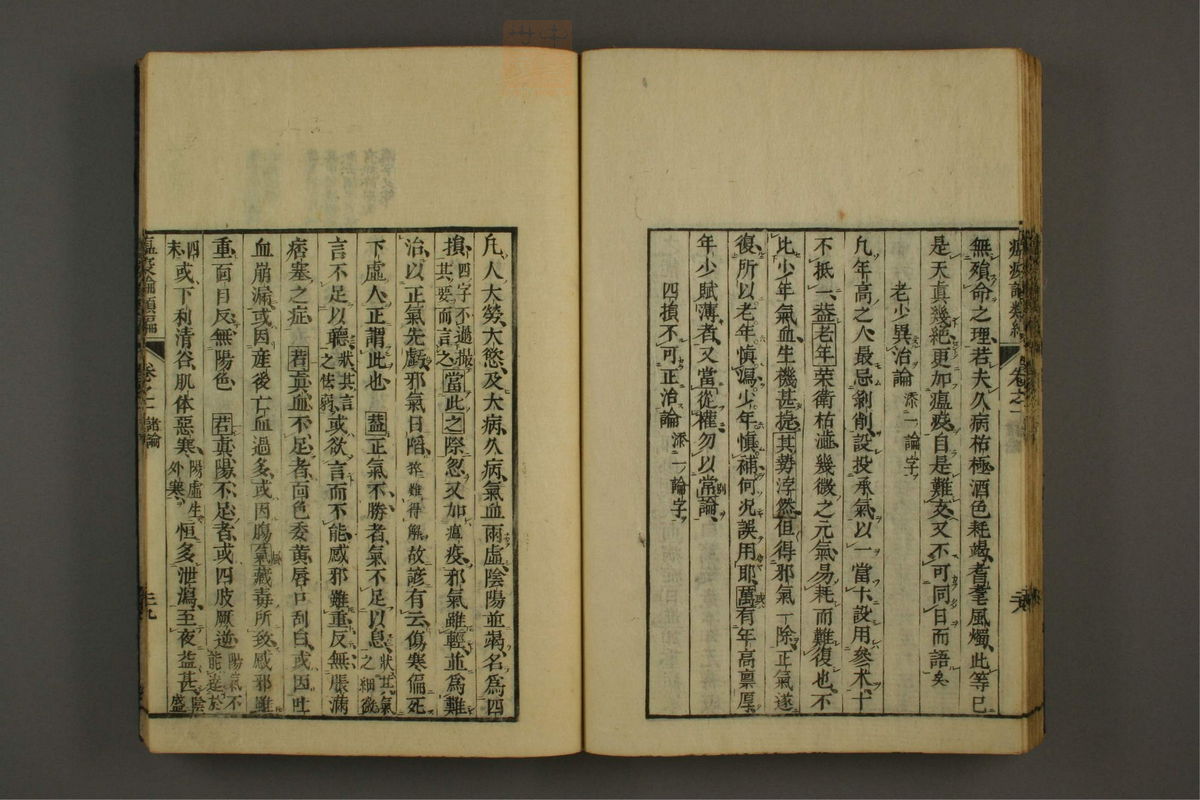 無殞命之理若夫久病枯極酒色耗竭耆耄風燭此等已
是天真幾絶更加瘟疫自是難支又不可同日而語矣
老少異治論 添一論字
凢年高之人最忌剝削設投承氣以一當十設用參术十
不抵一葢老年荣衛枯澁幾微之元氣昜耗而難復也不
比少年氣血生機甚捷其勢浡然但得邪氣一除正氣遂
復所以老年慎瀉少年慎補何况誤用耶萬有年高禀厚
年少賦薄者又當從權勿以常論
四損不可正治論 添一論字
凢人大勞大慾及大病久病氣血兩虛陰陽並竭名爲四
損四字不過撮其要而言之當此之際忽又加瘟疫邪氣雖輕並爲難
治以正氣先虧邪氣日䧟猝難得解故諺有云傷寒偏死
下虛人正謂此也葢正氣不勝者氣不足以息狀其氣之細微
言不足以聽狀其言之怯弱或欲言而不能感邪雖重反無脹滿
痞塞之症若真血不足者面色委黄唇口刮白或因吐
血崩漏或因産後亡血過多或因腸氣藏毒所致感邪雖
重面目反無陽色若真陽不足者或四肢厥逆陽氣不能逹於
四末或下利清谷肌体惡寒陽虛生外寒恒多泄瀉至夜益甚陰盛
卷之二 諸論